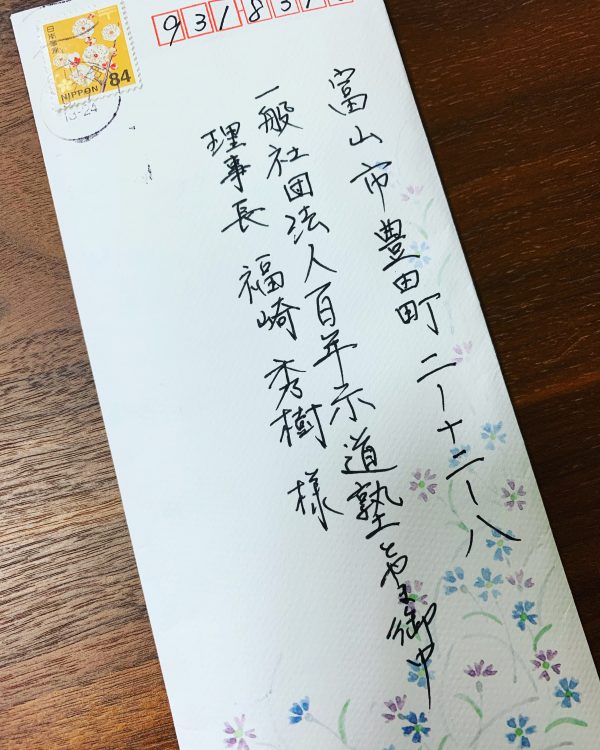 日本郵便
NIPPON 84
931831
富山市豊田町二ー十二ー八
一般社団法人百年示道塾とやま御中
理事長 福崎秀樹 様